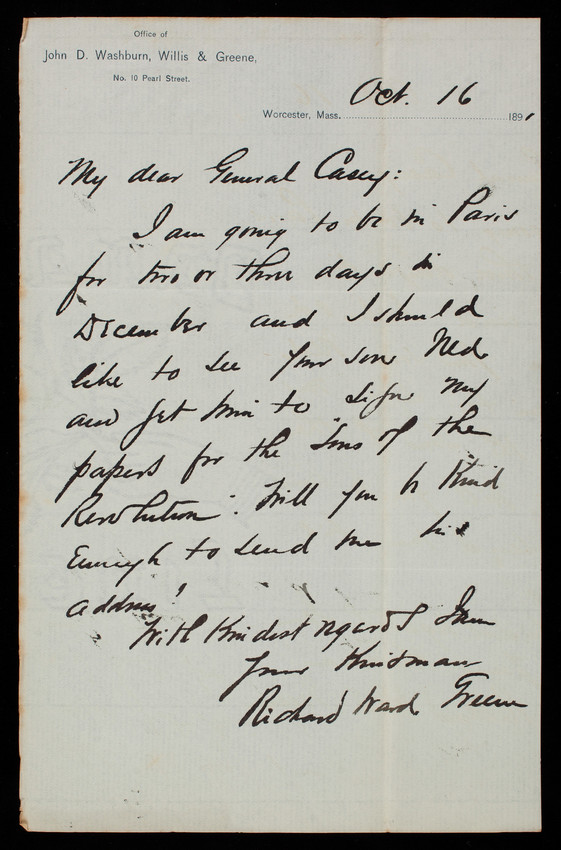 Office of
John D. Washburn, Willis & Greene,
No. 10 Pearl Street.
Worcester, Mass. Oct. 16 1891
My dear General Casey:
I am going to be in Paris
for two or three days in
December and I should
like to see your son Ned
and get him to sign my
papers for the "Sons of the
Revolution". Will you be kind
enough to send me his
address?
With kindest regards I am
Your Kinsman
Richard Ward Greene